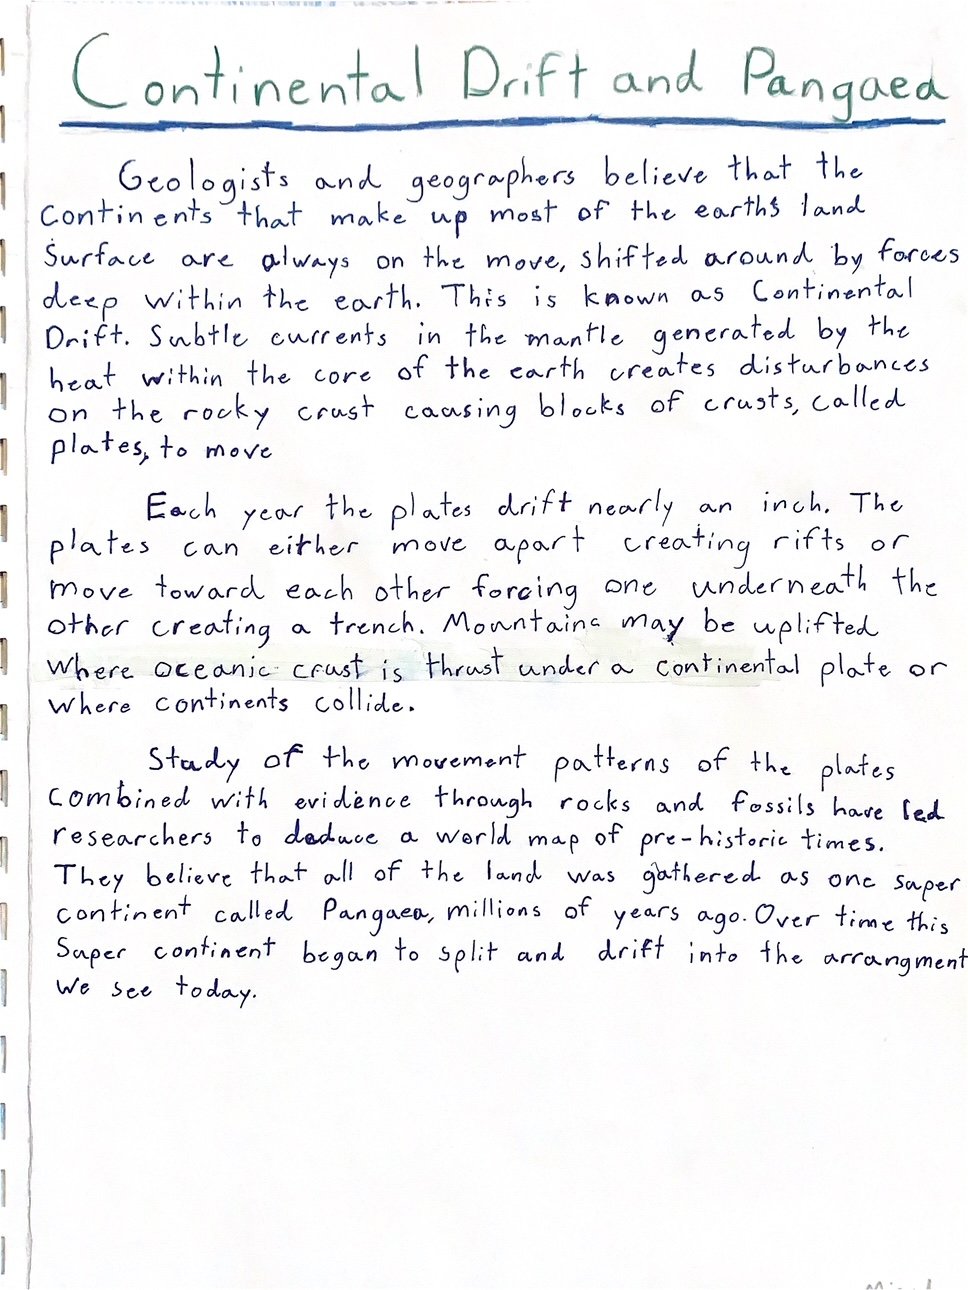 Continental Drift and Pangaea
Geologists and geographers believe that the
continents that make up most of the earths land
Surface are always on the move, shifted around by forces
deep within the earth. This is known as Continental
Drift. Subtle currents in the mantle generated by the
heat within the core of the earth creates disturbances
on the rocky crust causing blocks of crusts, called
plates, to move
Each year the plates drift nearly an inch. The
plates can either move apart creating rifts or
move toward each other forcing one underneath the
other creating a trench. Mountains may be uplifted
where oceanic crust is thrust under a continental plate or
where continents collide.
Study of the movement patterns of the plates
combined with evidence through rocks and fossils have led
researchers to deduce a world map of pre-historic times.
They believe that all of the land was gathered as one super
continent called Pangaea, millions of years ago. Over time this
Super continent began to split and drift into the arrangment
We see today.